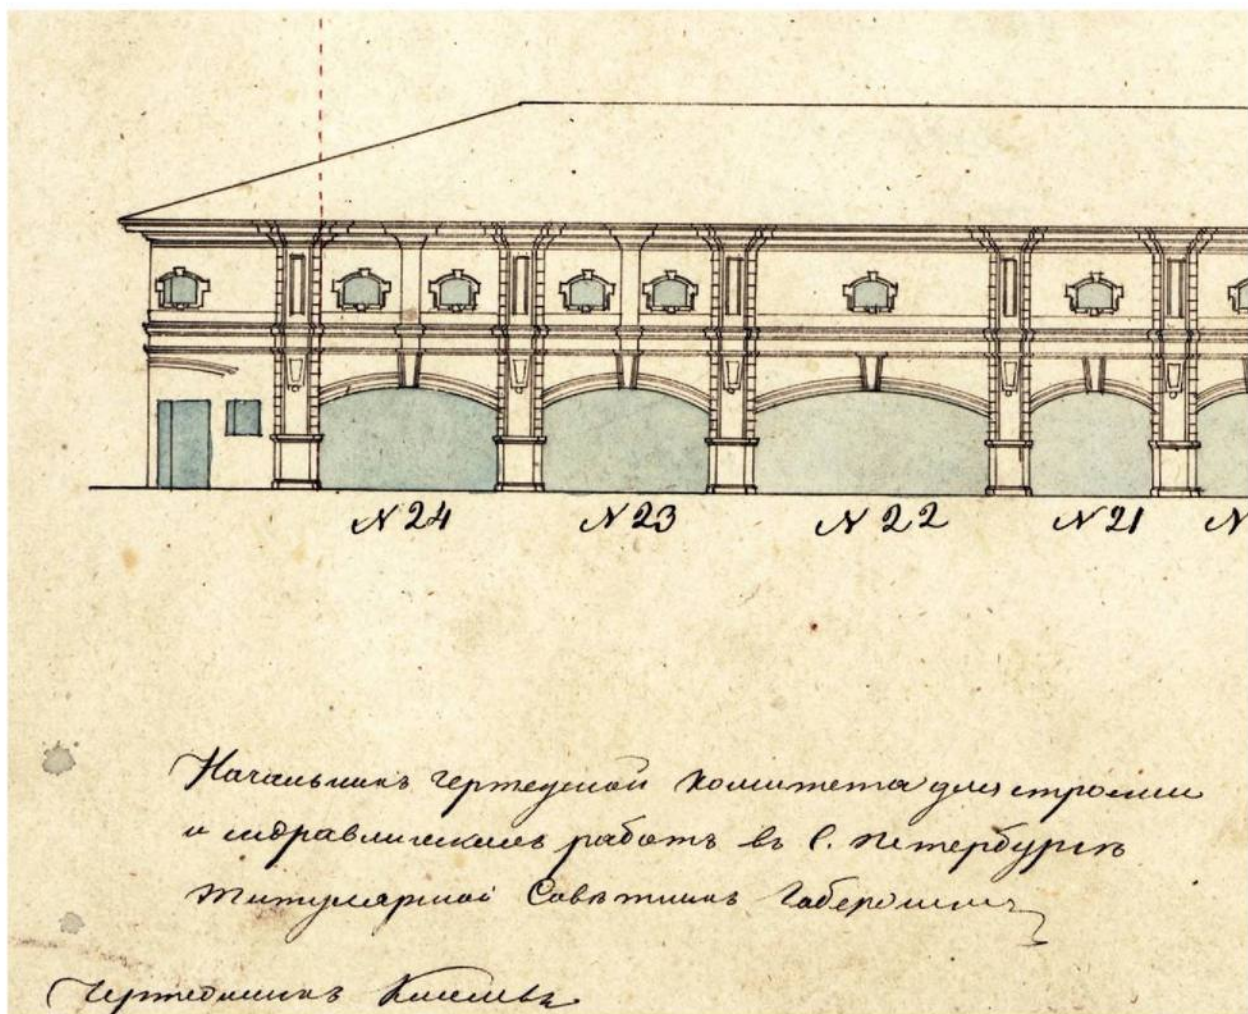 N 24 N 23 N 22 N 21 N
Начальникъ чертежной Комитета для строений
и гидравлическихъ работъ въ С. Петербургѣ
Титулярной Совѣтникъ
Чертежникъ